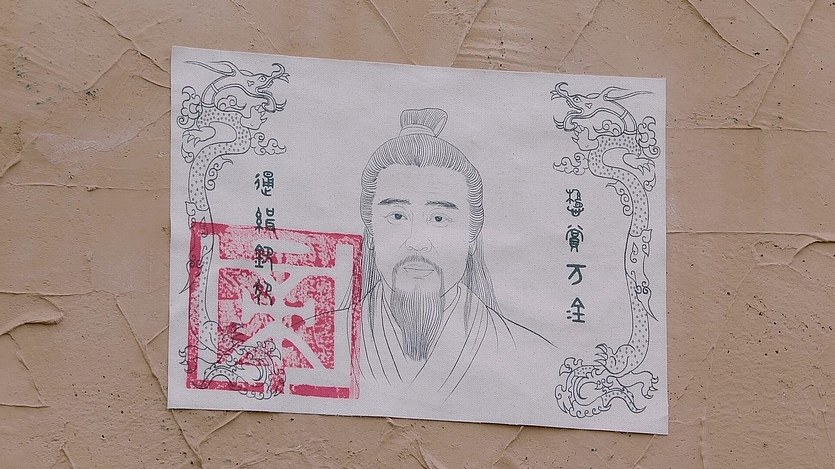 懸賞万金
通緝欽犯